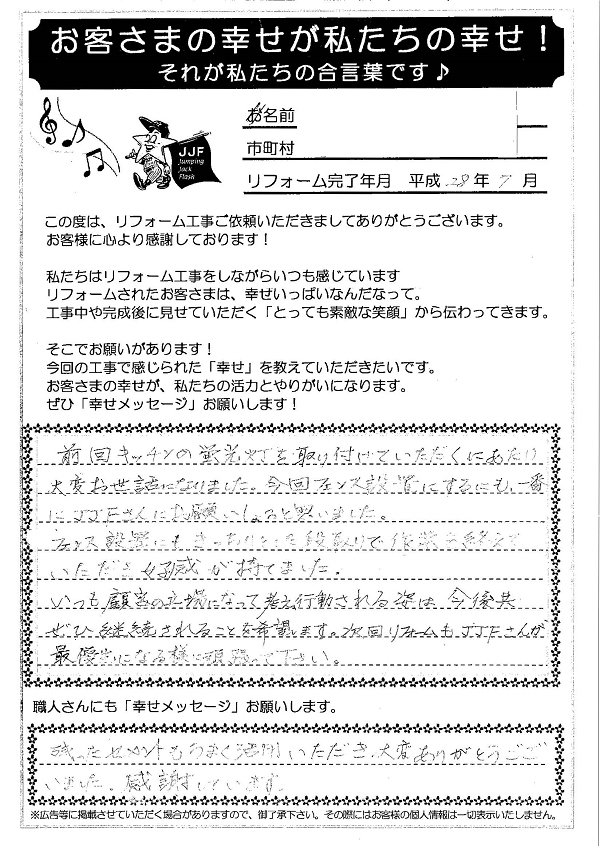 お客さまの幸せが私たちの幸せ！
それが私たちの合言葉です♪
JJF
Jumping
Jack
Flash
お名前
市町村
リフォーム完了年月 平成 28 年 7 月
この度は、リフォーム工事ご依頼いただきましてありがとうございます。
お客様に心より感謝しております！
私たちはリフォーム工事をしながらいつも感じています
リフォームされたお客さまは、幸せいっぱいなんだなって。
工事中や完成後に見せていただく「とっても素敵な笑顔」から伝わってきます。
そこでお願いがあります！
今回の工事で感じられた「幸せ」を教えていただきたいです。
お客さまの幸せが、私たちの活力とやりがいになります。
ぜひ「幸せメッセージ」お願いします！
前回キッチンの蛍光灯を取り付けていただくにあたり
大変お世話になりました。今回フェンス設置にするにも、一番
にJJFさんにお願いしようと思いました。
フェンス設置にもきっちりとした段取りで作業を終えて
いただき好感が持てました。
いつも顧客の立場になって考え行動される姿は今後共
ぜひ継続されることを希望します。次回リフォームもJJFさんが
最優先になる様に頑張って下さい。
職人さんにも「幸せメッセージ」お願いします。
残ったセメントもうまく活用いただき、大変ありがとうござ
いました。感謝しています。
※広告等に掲載させていただく場合がありますので、御了承下さい。その際にはお客様の個人情報は一切表示いたしません。